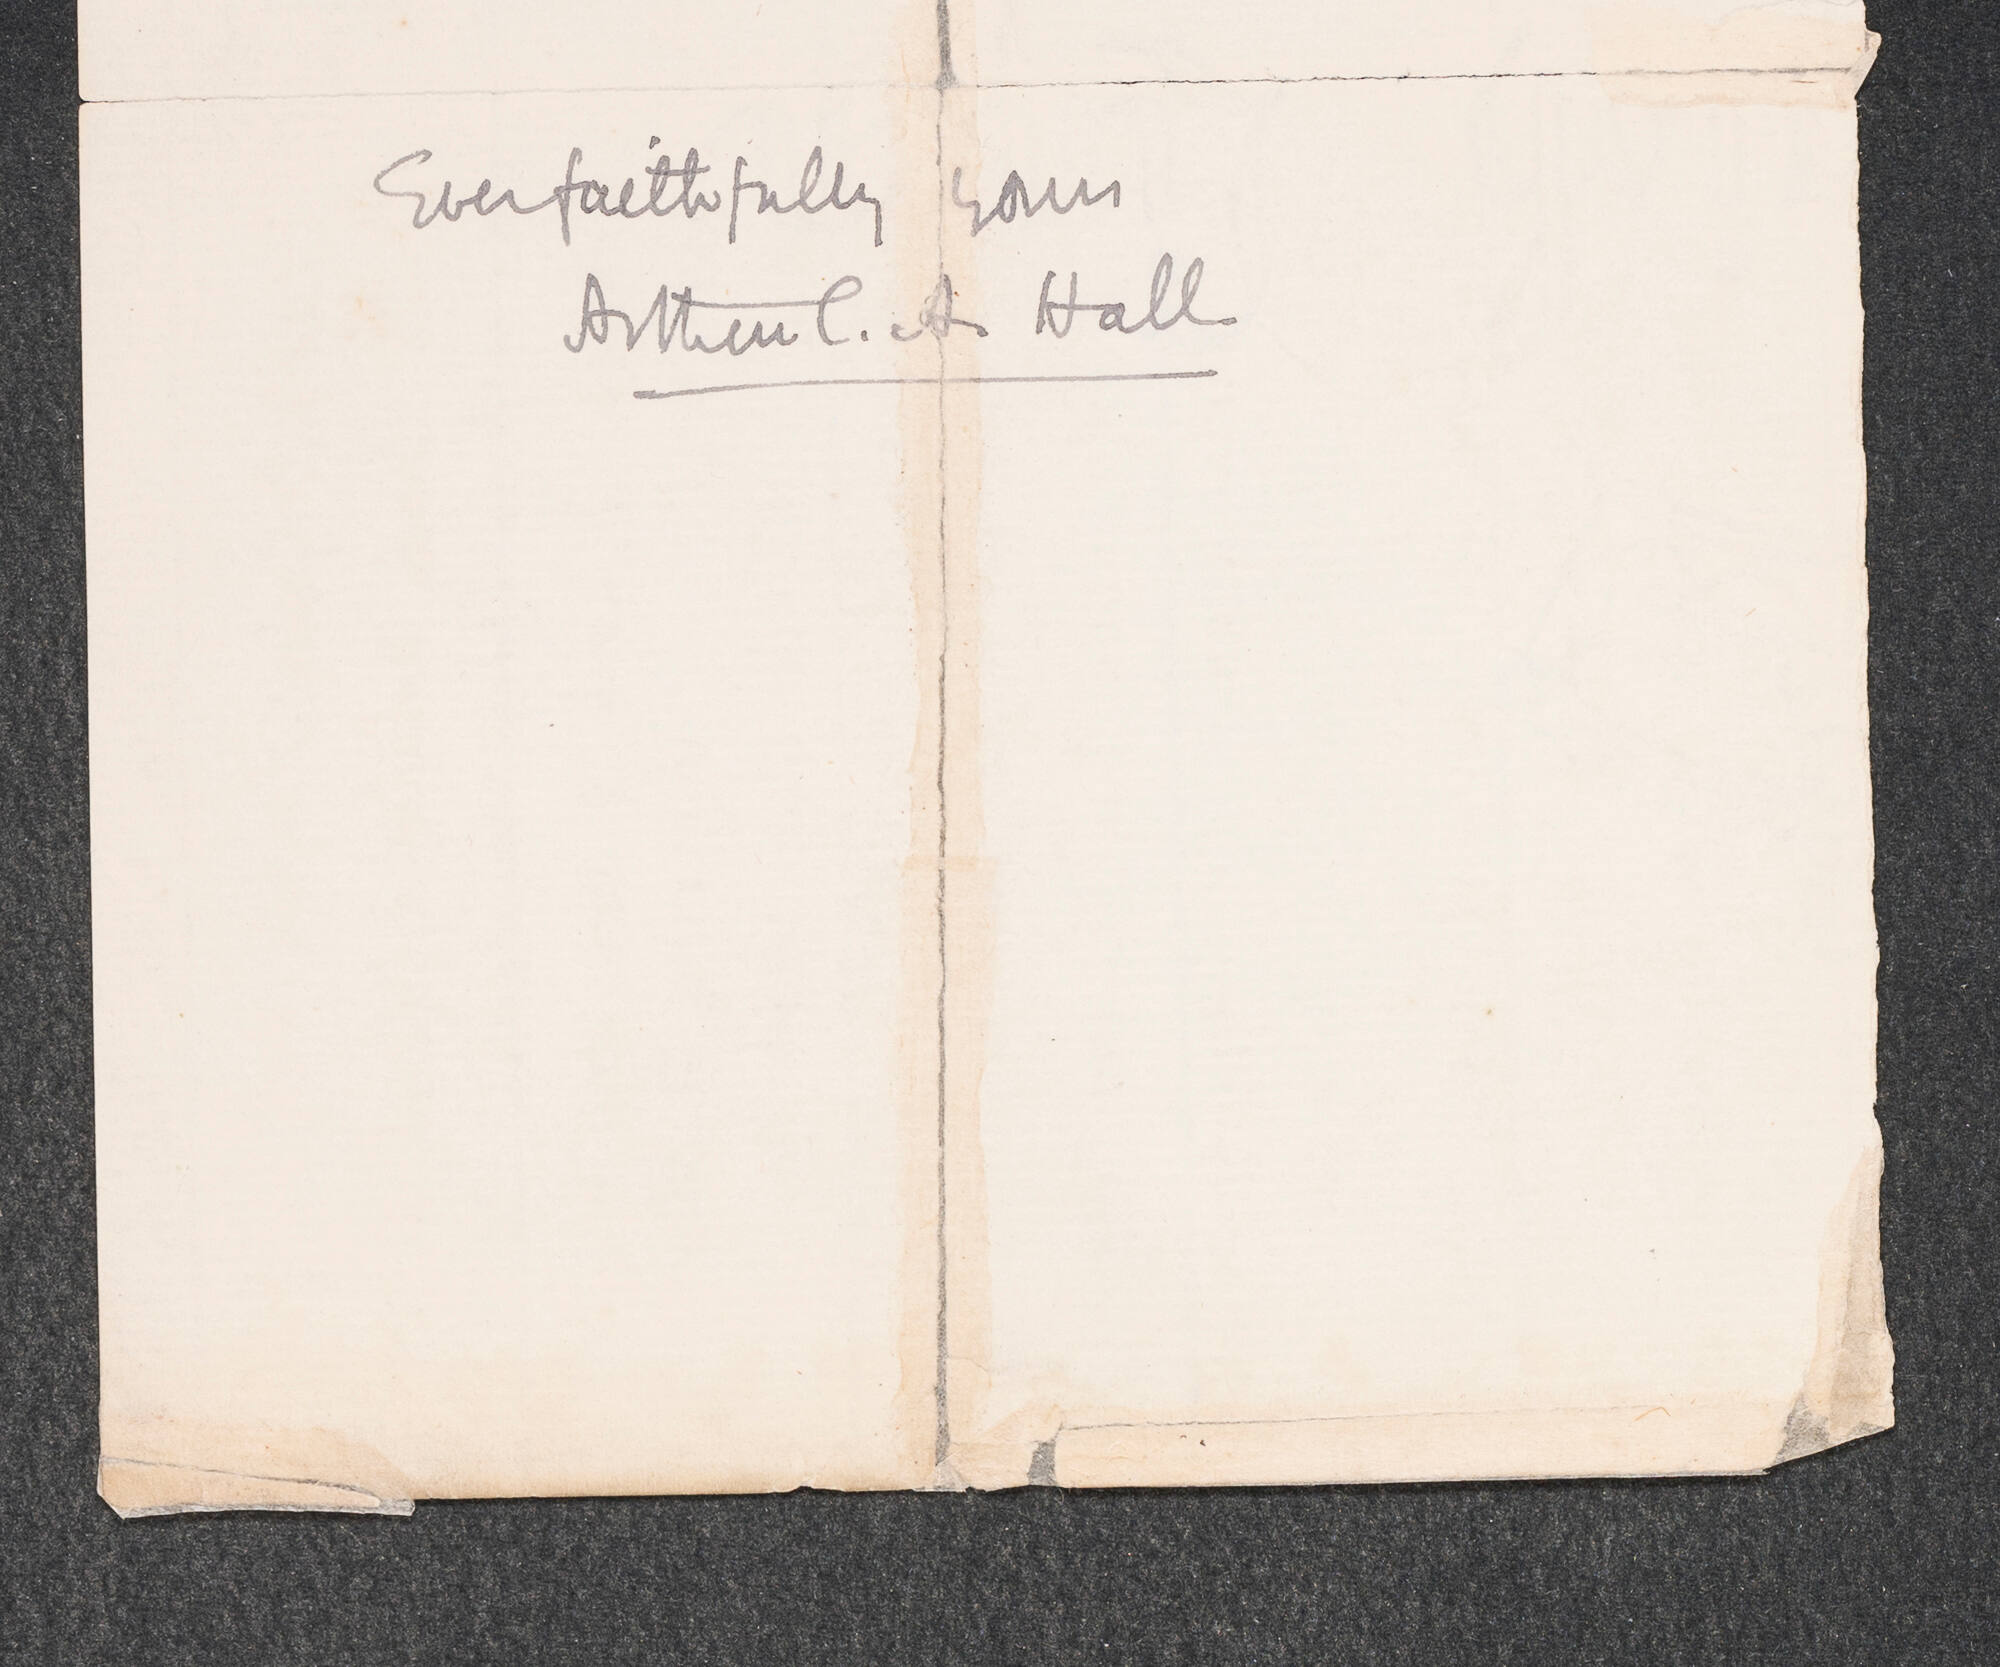 Ever faithfully yours
Arthur C. A. Hall